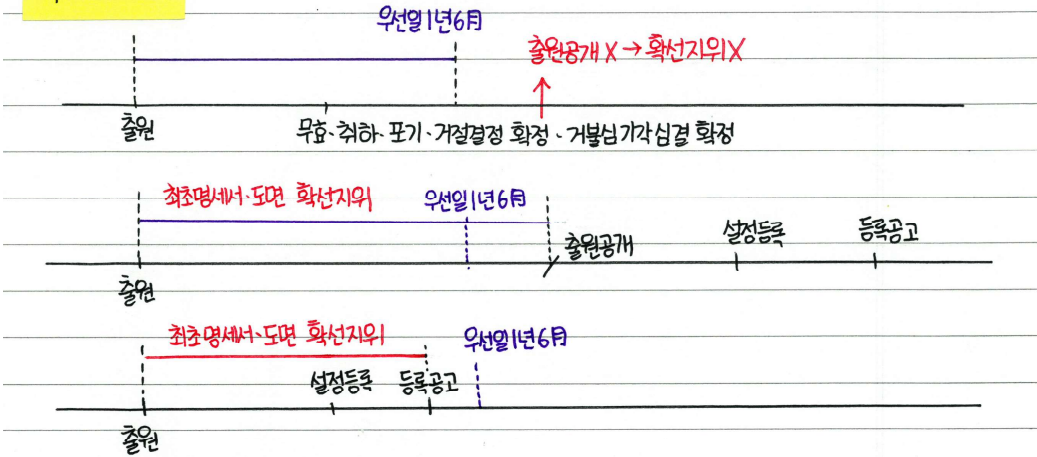 우선일1년6月
출원공개 X → 확선지위 X
출원
무효·취하·포기·거절결정 확정·거불심기각심결 확정
최초명세서·도면 확선지위
우선일1년6月
출원공개
설정등록
등록공고
출원
최초명세서·도면 확선지위
우선일1년6月
설정등록
등록공고
출원